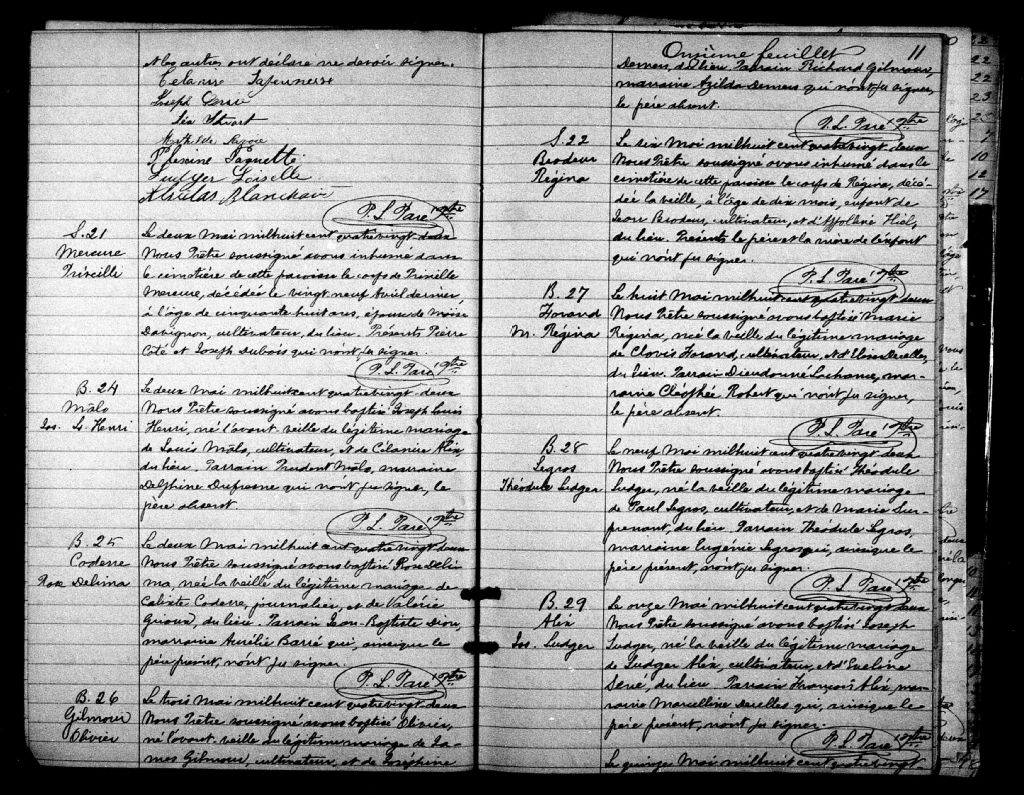 les autres ont déclaré ne savoir signer.
Joseph
Mathilde
Pherine Paquette
Loiselle
Nicolas Blanchard
P. L. Paré Ptre
S. 21
Mercure
Priscille
Le deux Mai mil huit cent quatre vingt deux
Nous Prêtre soussigné avons inhumé dans
le cimetière de cette paroisse le corps de Priscille
Mercure, décédée le vingt neuf Avril dernier,
à l'âge de cinquante huit ans, épouse de Moïse
Davignon, cultivateur, du lieu. Présents Pierre
Coté et Joseph Dubois qui n'ont pu signer.
P. L. Paré Ptre
B. 24
Malo
Jos. L. Henri
Le deux Mai mil huit cent quatre vingt deux
Nous Prêtre soussigné avons baptisé Joseph Louis
Henri, né l'avant veille du légitime mariage
de Louis Malo, cultivateur, et de Célanire Alix
du lieu. Parrain Prudent Malo, marraine
Delphine Dufresne qui n'ont pu signer, le
père absent.
P. L. Paré Ptre
B. 25
Coderre
Rose Delima
Le deux Mai mil huit cent quatre vingt deux
Nous Prêtre soussigné avons baptisé Rose Deli-
ma, née la veille du légitime mariage de
Calixte Coderre, journalier, et de Valérie
Giroux, du lieu. Parrain Jean-Baptiste Dion,
marraine Aurélie Barré qui, ainsi que le
père présent, n'ont pu signer.
P. L. Paré Ptre
B. 26
Gilmour
Olivier
Le trois Mai mil huit cent quatre vingt deux
Nous Prêtre soussigné avons baptisé Olivier,
né l'avant veille du légitime mariage de Ja-
mes Gilmour, cultivateur, et de Joséphine
Onzième feuillet
11
Demers, du lieu. Parrain Richard Gilmour,
marraine Azilda Demers qui n'ont pu signer,
le père absent.
P. L. Paré Ptre
S. 22
Brodeur
Régina
Le six Mai mil huit cent quatre vingt deux
Nous Prêtre soussigné avons inhumé dans le
cimetière de cette paroisse le corps de Régina, décé-
dée la veille, à l'âge de dix mois, enfant de
Jean Brodeur, cultivateur, et d'
du lieu. Présents le père et la mère de l'enfant
qui n'ont pu signer.
P. L. Paré Ptre
B. 27
Forand
M. Régina
Le huit Mai mil huit cent quatre vingt deux
Nous Prêtre soussigné avons baptisé Marie
Régina, née la veille du légitime mariage
de Clovis Forand, cultivateur, et d'
du lieu. Parrain Dieudonné Lachance, mar-
raine Cléophée Robert qui n'ont pu signer,
le père absent.
P. L. Paré Ptre
B. 28
Legros
Théodule Ludger
Le neuf Mai mil huit cent quatre vingt deux
Nous Prêtre soussigné avons baptisé Théodule
Ludger, né la veille du légitime mariage
de Paul Legros, cultivateur, et de Marie Sur-
prenant, du lieu. Parrain Théodule Legros,
marraine Eugénie Legros qui, ainsi que le
père présent, n'ont pu signer.
P. L. Paré Ptre
B. 29
Alix
Jos. Ludger
Le onze Mai mil huit cent quatre vingt deux
Nous Prêtre soussigné avons baptisé Joseph
Ludger, né la veille du légitime mariage
de Ludger Alix, cultivateur, et d'Eveline
Sené, du lieu. Parrain François Alix, mar-
raine Marcelline qui, ainsi que le
père présent, n'ont pu signer.
P. L. Paré Ptre
Le quinze Mai mil huit cent quatre vingt